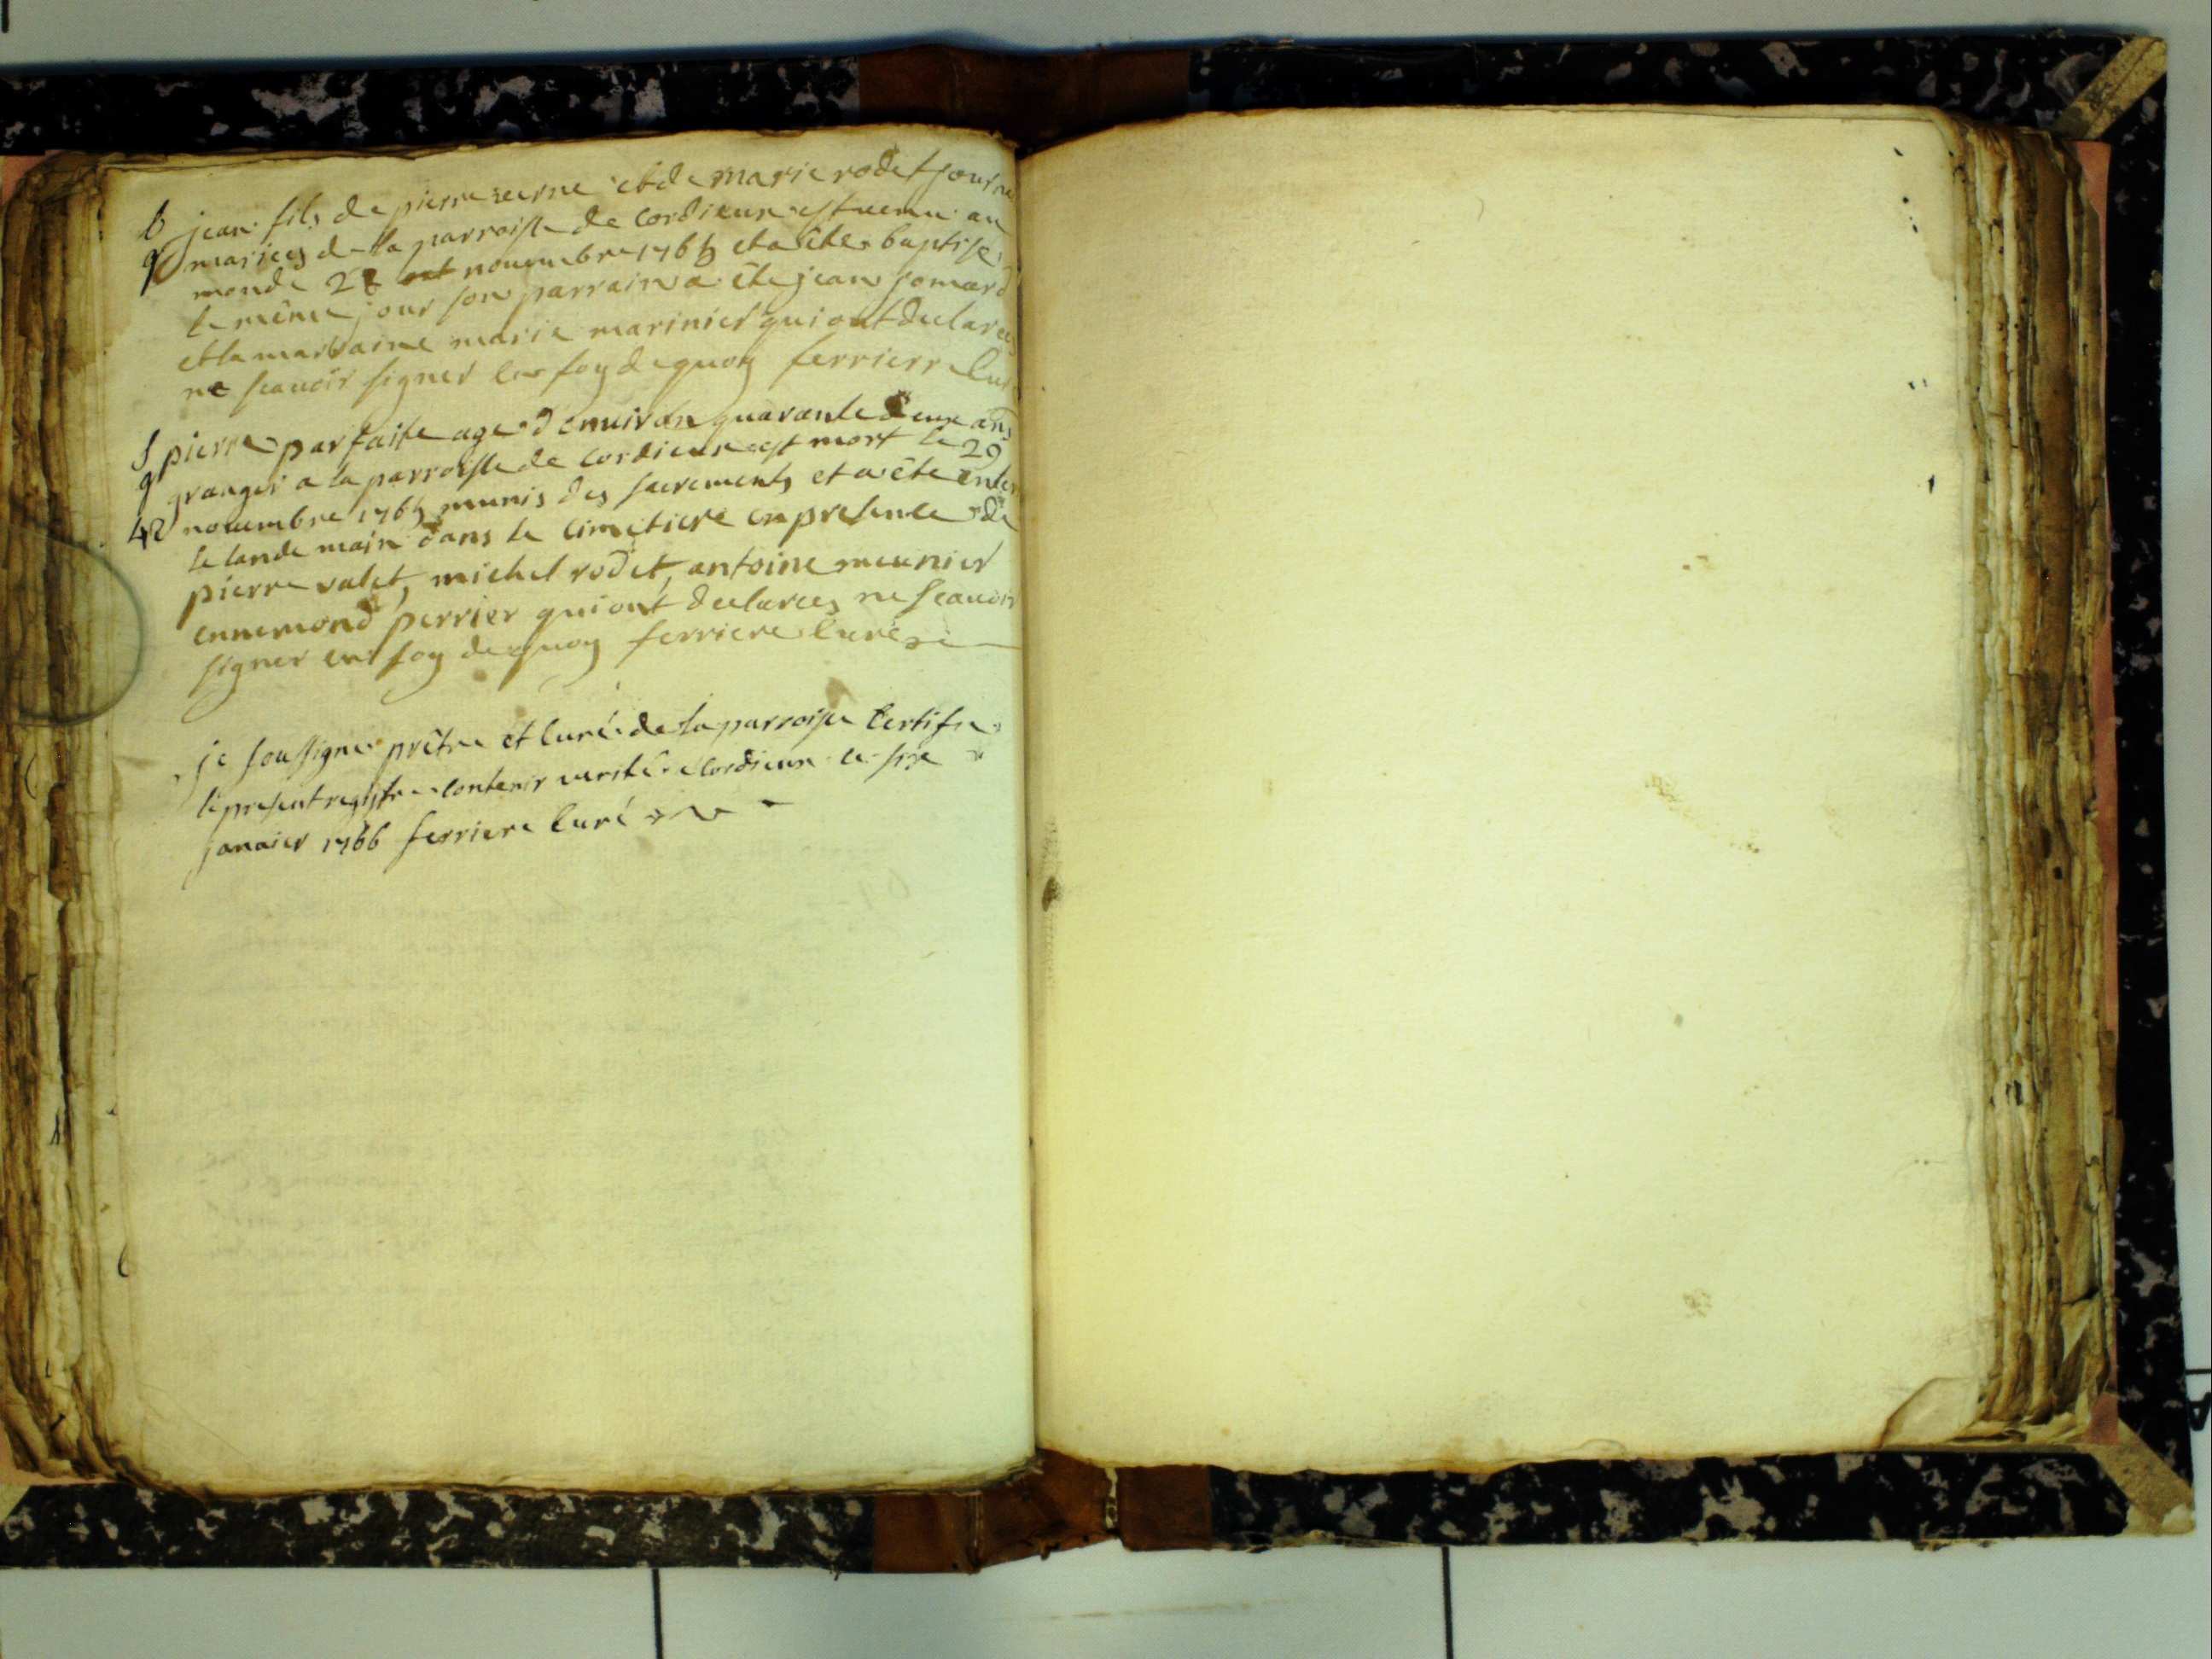 b jean fils de pierre et de marie rodet journa
9 mariees de la parroisse de cordieux est venu au
monde 28 novembre 1765 et a été baptisé
le même jour son parrain a été jean jomard
et la marraine marie marinier qui ont declarees
ne scavoir signer en foy de quoy ferriere curé
S pierre parfaite age d'environ quarante deux ans
9 granger a la parroisse de cordieux est mort le 29
42 novembre 1765 munis des sacrements et a été enter
le lande main dans le cimetiere en presence de
pierre valet, michel rodet, antoine meunier
ennemond perrier qui ont declarees ne scavoir
signer en foy de quoy ferriere curé
je soussigné prêtre et curé de la parroisse certifie
le present registre contenir verité a cordieux ce six
janvier 1766 ferriere curé